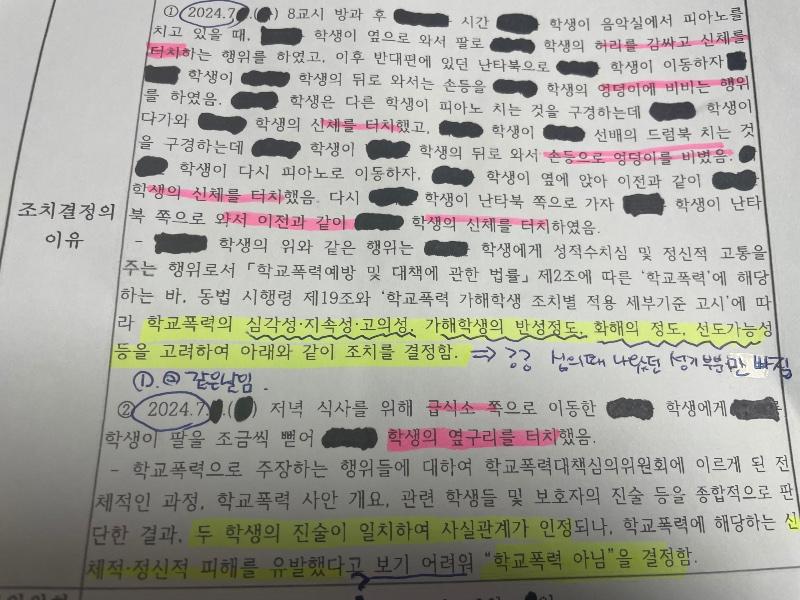 ① 2024.7.( ) 8교시 방과 후 시간 학생이 음악실에서 피아노를
치고 있을 때, 학생이 옆으로 와서 팔로 학생의 허리를 감싸고 신체를
터치하는 행위를 하였고, 이후 반대편에 있던 난타북으로 학생이 이동하자
학생이 학생의 뒤로 와서는 손등을 학생의 엉덩이에 비비는 행위
를 하였음. 학생은 다른 학생이 피아노 치는 것을 구경하는데 학생이
다가와 학생의 신체를 터치했고, 학생이 선배의 드럼북 치는 것
을 구경하는데 학생이 학생의 뒤로 와서 손등으로 엉덩이를 비볐음.
학생이 다시 피아노로 이동하자. 학생이 옆에 앉아 이전과 같이
학생의 신체를 터치했음. 다시 학생이 난타북 쪽으로 가자 학생이 난타
북 쪽으로 와서 이전과 같이 학생의 신체를 터치하였음.
조치결정의
이유
- 학생의 위와 같은 행위는 학생에게 성적수치심 및 정신적 고통을
주는 행위로서 「학교폭력예방 및 대책에 관한 법률」 제2조에 따른 '학교폭력'에 해당
하는 바, 동법 시행령 제19조와 '학교폭력 가해학생 조치별 적용 세부기준 고시'에 따
라 학교폭력의 심각성·지속성·고의성, 가해학생의 반성정도, 화해의 정도, 선도가능성
등을 고려하여 아래와 같이 조치를 결정함. ⇒ 심의때 나왔던 성기부분만 빠짐
①.② 같은날임.
② 2024.7.( ) 저녁 식사를 위해 급식소 쪽으로 이동한 학생에게
학생이 팔을 조금씩 뻗어 학생의 옆구리를 터치했음.
- 학교폭력으로 주장하는 행위들에 대하여 학교폭력대책심의위원회에 이르게 된 전
체적인 과정, 학교폭력 사안 개요, 관련 학생들 및 보호자의 진술 등을 종합적으로 판
단한 결과, 두 학생의 진술이 일치하여 사실관계가 인정되나, 학교폭력에 해당하는 신
체적·정신적 피해를 유발했다고 보기 어려워 "학교폭력 아님"을 결정함.
?